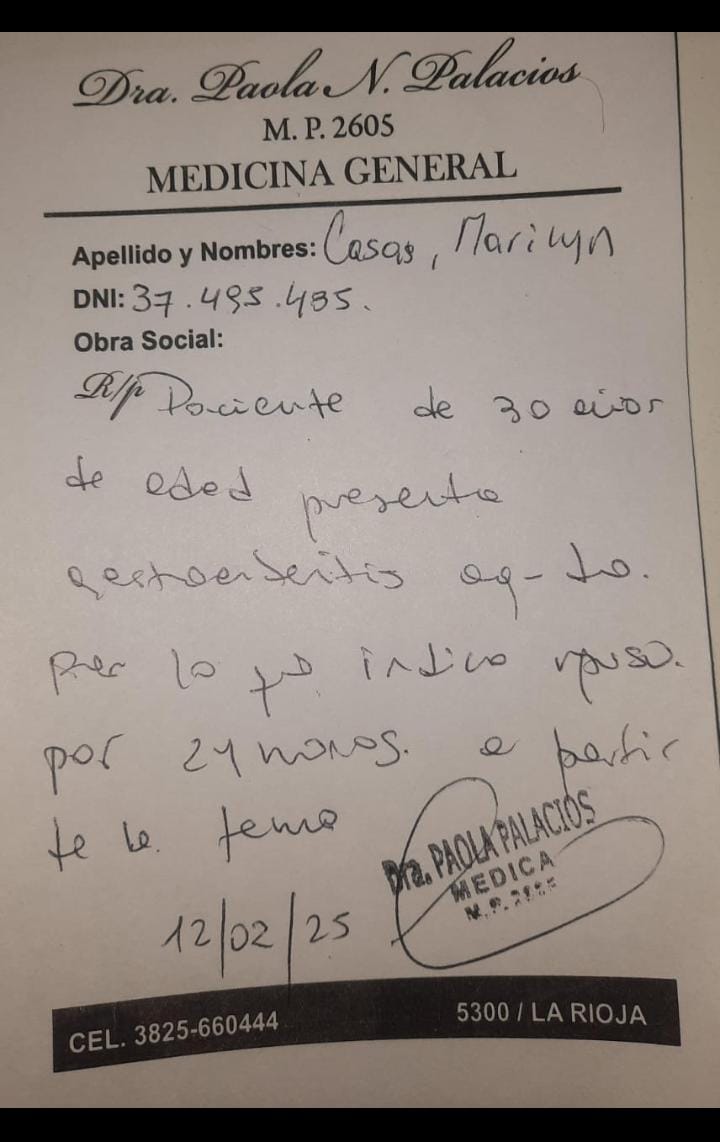 Dra. Paola N. Palacios
M. P. 2605
MEDICINA GENERAL
Apellido y Nombres: Casas, Marilyn
DNI: 37.495.485.
Obra Social:
R/p Paciente de 30 años
de edad presenta
gastroenteritis
por lo q indico reposo.
por 24 horas. a partir
de la fecha
Dra. PAOLA PALACIOS
MEDICA
M.P.
12/02/25
CEL. 3825-660444
5300 / LA RIOJA